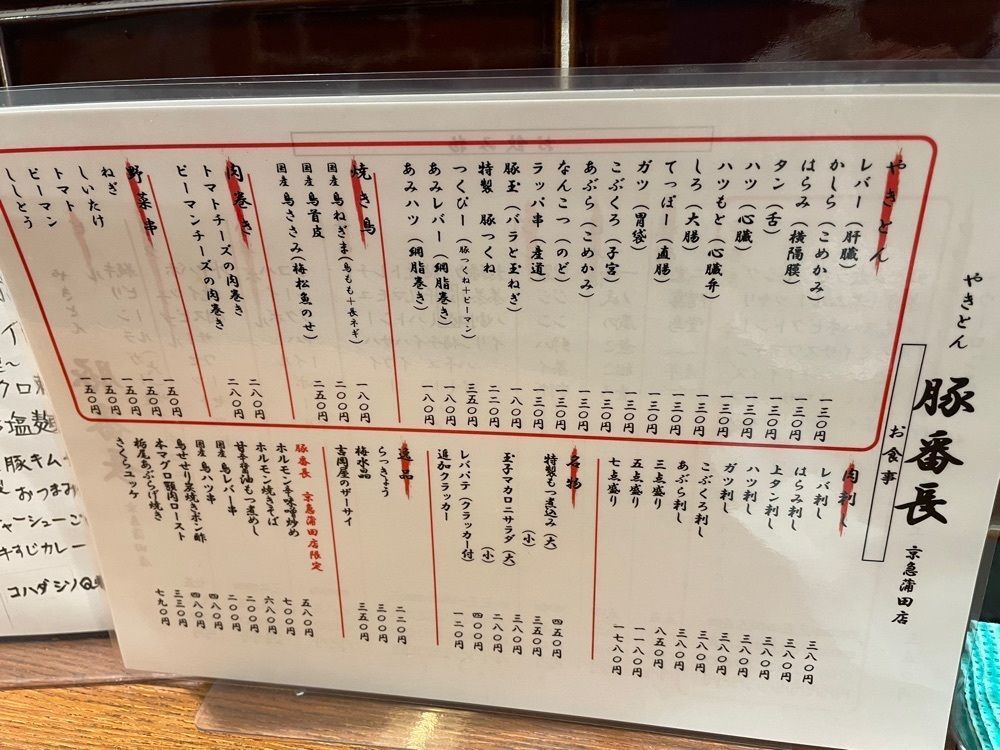 やきとん
豚番長
京急蒲田店
お食事
やきとん
レバー（肝臓） 一三〇円
かしら（こめかみ） 一三〇円
はらみ（横隔膜） 一三〇円
タン（舌） 一三〇円
ハツ（心臓） 一三〇円
ハツもと（心臓弁） 一三〇円
しろ（大腸） 一三〇円
てっぽー（直腸） 一三〇円
ガツ（胃袋） 一三〇円
こぶくろ（子宮） 一三〇円
あぶら（こめかみ） 一三〇円
なんこつ（のど） 一三〇円
ラッパ串（産道） 一三〇円
豚玉（バラと玉ねぎ） 一八〇円
特製 豚つくね 二二〇円
つくぴー（豚つくね＋ピーマン） 三五〇円
あみレバー（網脂巻き） 一八〇円
あみハツ（網脂巻き） 一八〇円
焼き鳥
国産 鳥ねぎま（鳥もも＋長ネギ） 一八〇円
国産 鳥首皮 二〇〇円
国産 鳥ささみ（梅松魚のせ） 二五〇円
肉巻き
トマトチーズの肉巻き 二八〇円
ピーマンチーズの肉巻き 二八〇円
野菜串
ねぎ 一五〇円
しいたけ 一五〇円
トマト 一五〇円
ピーマン 一五〇円
ししとう 一五〇円
肉刺し
レバ刺し 三八〇円
はらみ刺し 三八〇円
上タン刺し 三八〇円
ハツ刺し 三八〇円
ガツ刺し 三八〇円
こぶくろ刺し 三八〇円
あぶら刺し 三八〇円
三点盛り 八五〇円
五点盛り 一一八〇円
七点盛り 一七八〇円
名物
特製もつ煮込み（大） 四五〇円
（小） 三五〇円
玉子マカロニサラダ（大） 三八〇円
（小） 二八〇円
レバパテ（クラッカー付） 四〇〇円
追加クラッカー 一二〇円
逸品
らっきょう 二二〇円
梅水晶 三〇〇円
吉岡屋のザーサイ 三五〇円
豚番長 京急蒲田店限定
ホルモン辛味噌炒め 五八〇円
ホルモン焼きそば 七〇〇円
甘辛醤油もつ煮めし 六八〇円
国産 鳥レバー串 二〇〇円
国産 鳥ハツ串 二〇〇円
鳥せせり炭焼きポン酢 四八〇円
本マグロ顎肉ロースト 四八〇円
栃尾あぶらげ焼き 三三〇円
さくらユッケ 七九〇円
塩麹
豚キム
おつまみ
チャーシューご
牛すじカレー
コハダシソ